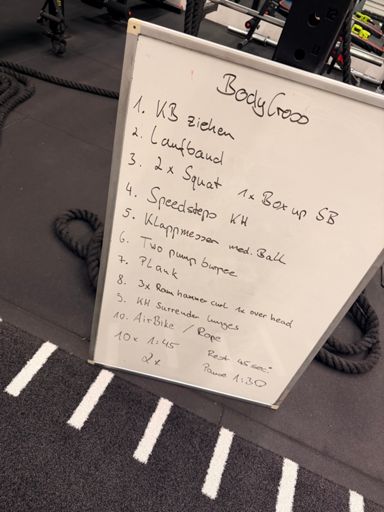 BodyCross
1. KB ziehen
2. Laufband
3. 2x Squat 1x Box up SB
4. Speedsteps KH
5. Klappmesser med. Ball
6. Two pump burpee
7. Plank
8. 3x Ram hammer curl 1x over head
9. KH Surrender lunges
10. AirBike / Rope
10x 1:45 Rest 45 sec.
2x Pause 1:30